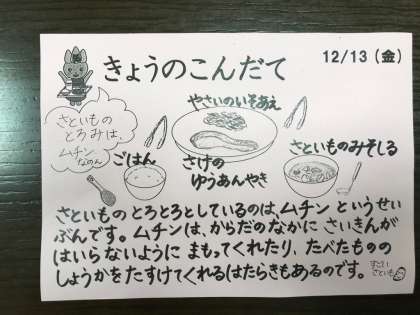 きょうのこんだて
12/13（金）
さといもの
とろみは、
ムチン
なのん
やさいのいそあえ
ごはん
さけの
ゆうあんやき
さといものみそしる
さといもの とろとろとしているのは、ムチン というせい
ぶんです。ムチンは、からだのなかに さいきんが
はいらないように まもってくれたり、たべたものの
しょうかを たすけてくれる はたらきもあるのです。
すごい
さといも